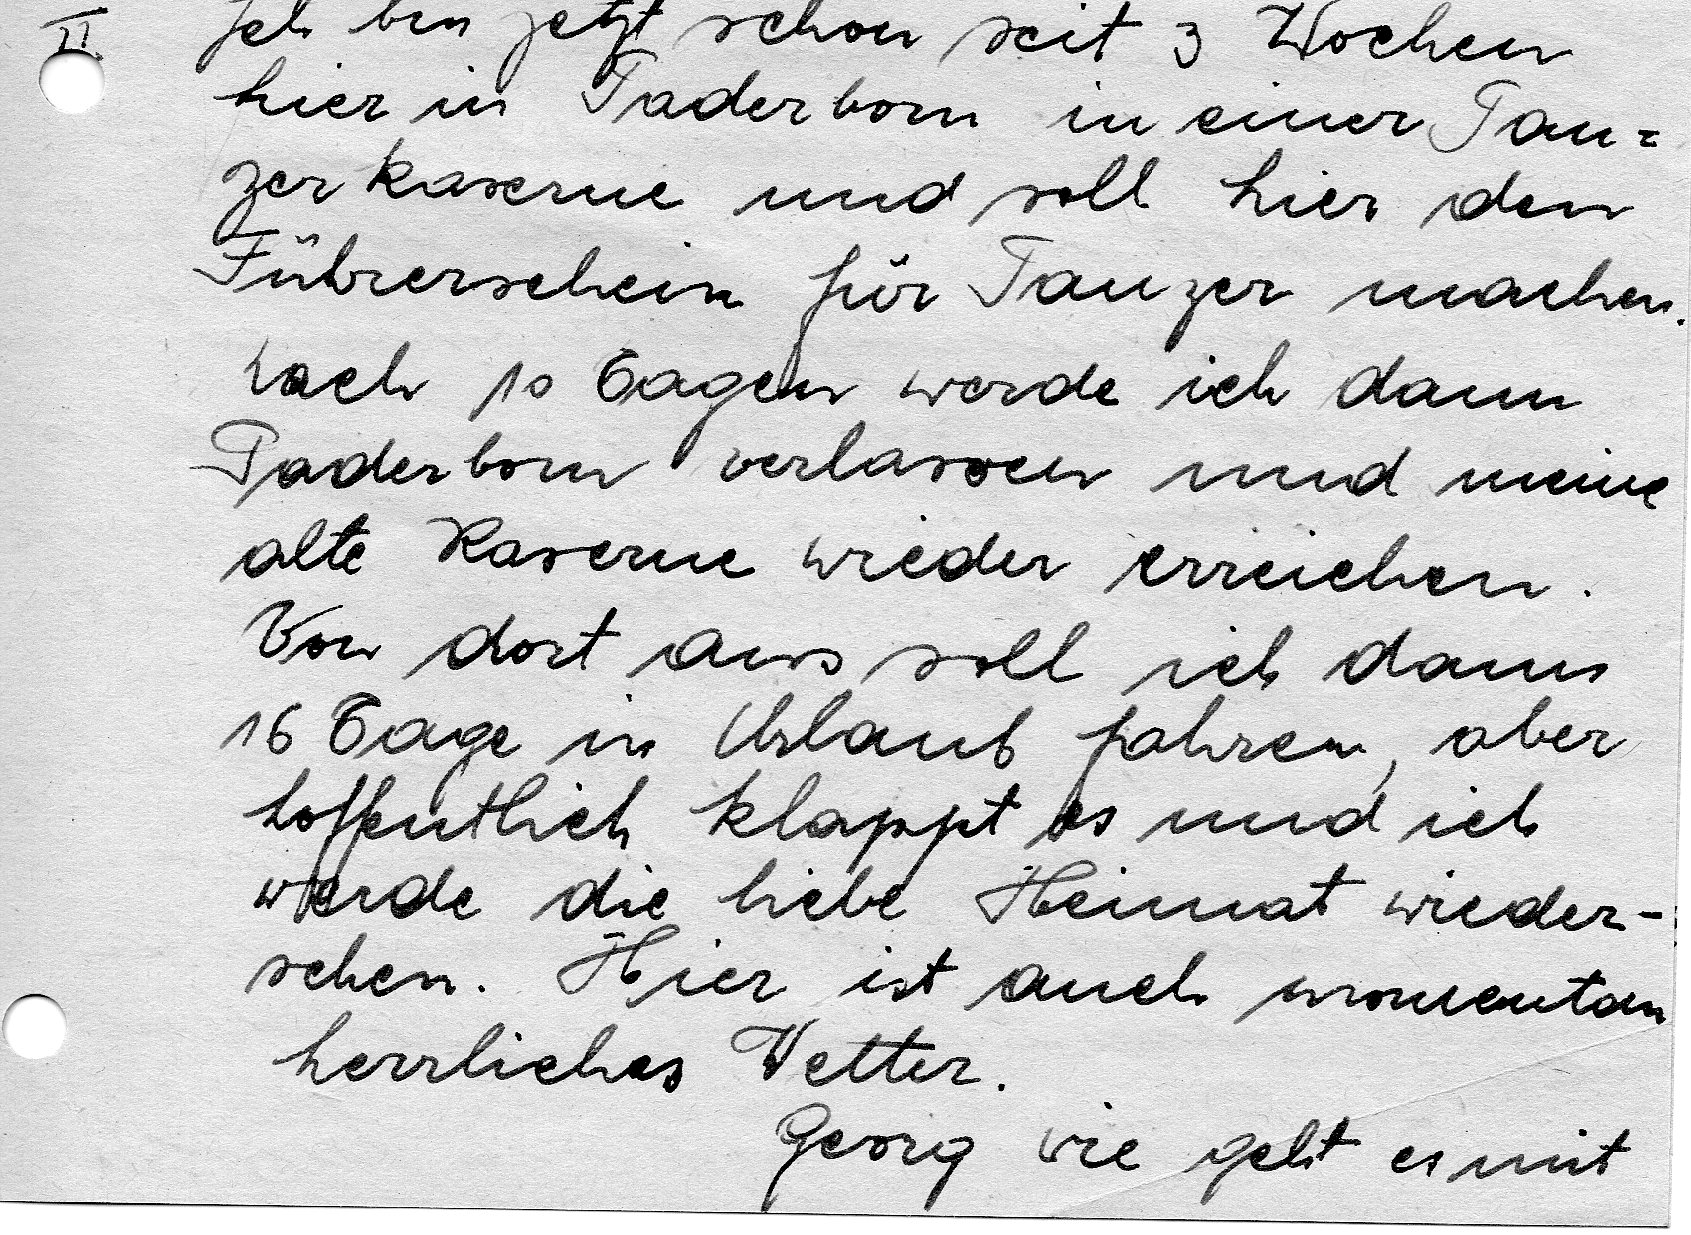 II. Ich bin jetzt schon seit 3 Wochen
hier in Paderborn in einer Pan=
zerkaserne und soll hier den
Führerschein für Panzer machen.
Nach 10 Tagen werde ich dann
Paderborn verlassen und meine
alte Kaserne wieder erreichen.
Von dort aus soll ich dann
16 Tage in Urlaub fahren, aber
hoffentlich klappt es und ich
werde die liebe Heimat wieder-
sehen. Hier ist auch momentan
herrliches Wetter.
Georg wie geht es mit